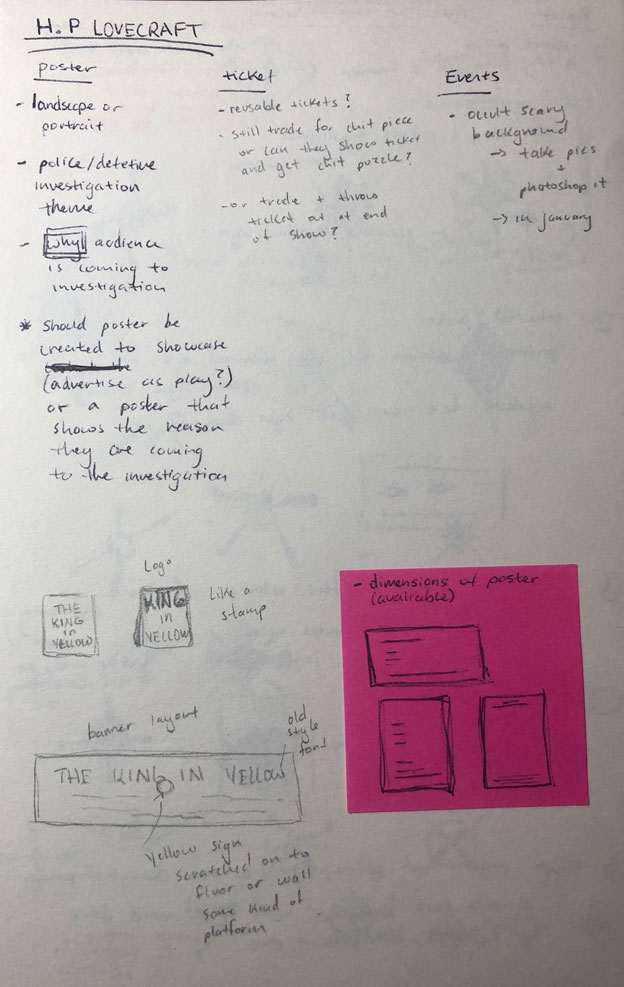 H. P LOVECRAFT
poster
- landscape or
portrait
- police/detetive
investigation
theme
- why audience
is coming to
investigation
* Should poster be
created to showcase
(advertise as play?)
or a poster that
shows the reason
they are coming
to the investigation
ticket
- reusable tickets?
- still trade for chit piece
or can they show ticket
and get chit puzzle?
- or trade + throw
ticket out at end
of show?
Events
- occult scary
background
→ take pics
+
photoshop it
→ in january
Logo
THE
KING
in
YELLOW
KING
in
YELLOW
Like a
stamp
- dimensions of poster
(avaliable)
banner layout
old
style
font
THE KING IN YELLOW
yellow sign
scratched on to
floor or wall
some kind of
platform